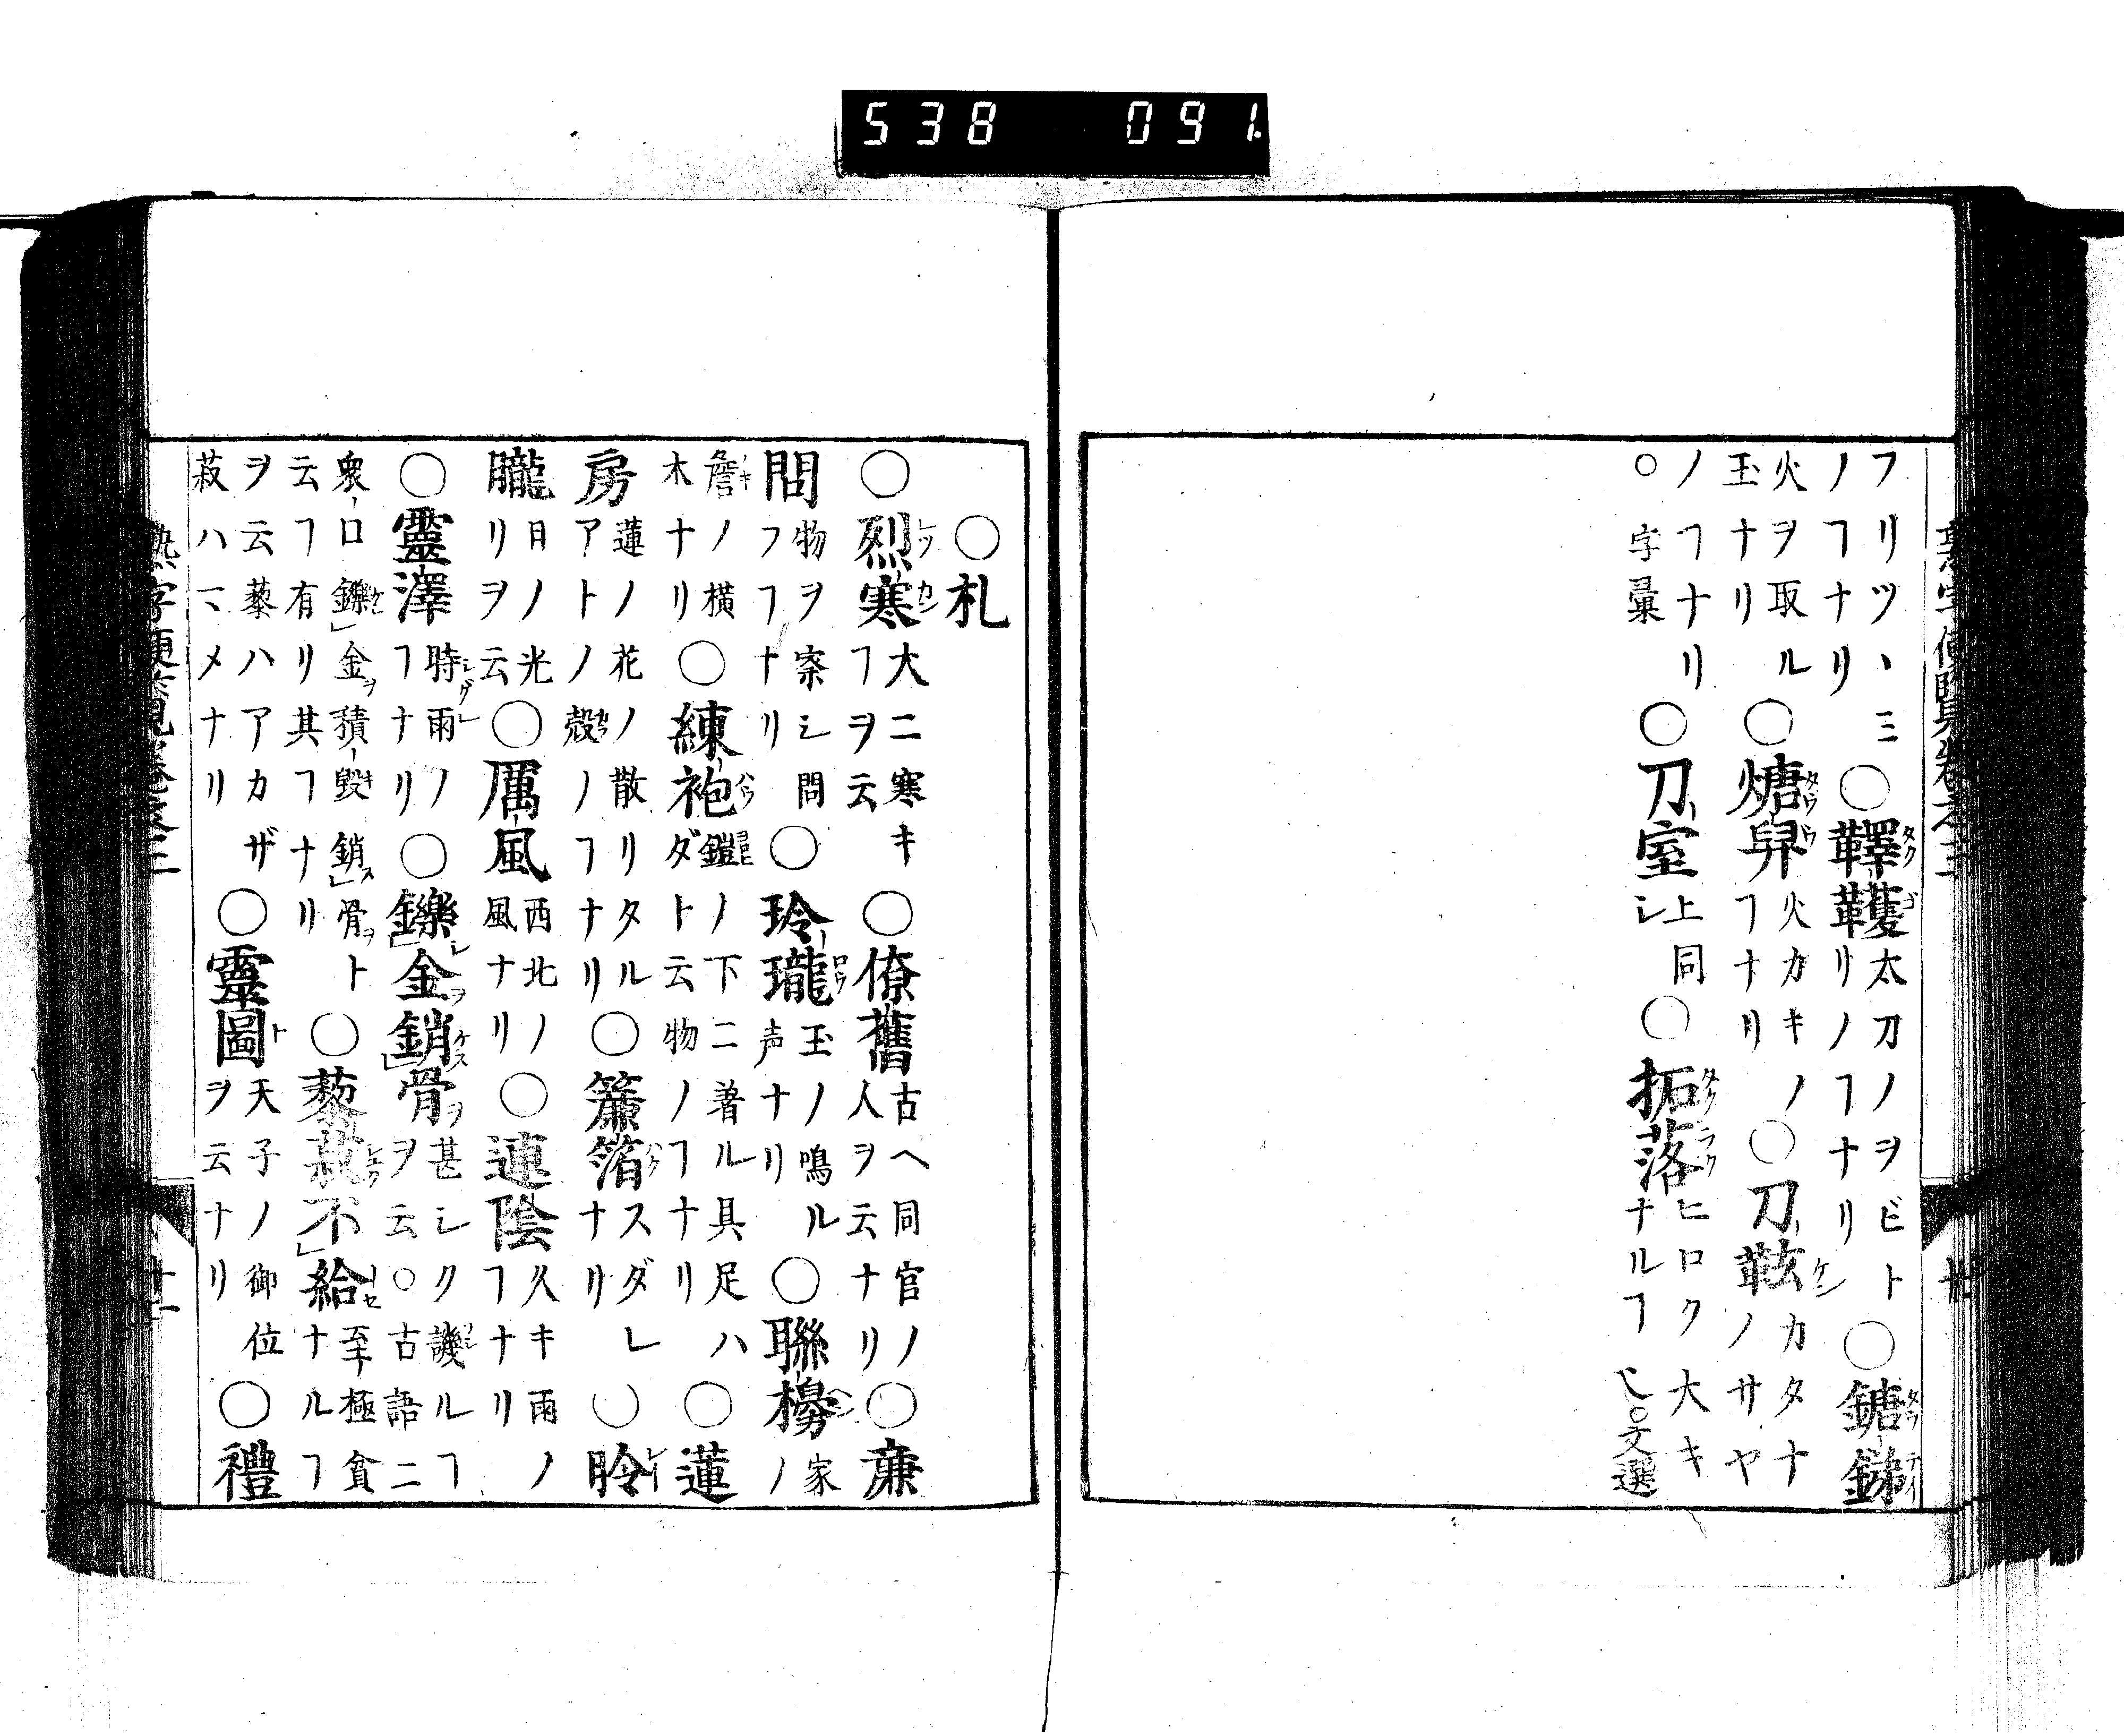 538 091
フリツヽミ
ノヿナリ
○鞸韄
太刀ノヲビト
リノヿナリ
○鎕銻
火ヲ取ル
玉ナリ
○煻舁
火カキノ
ヿナリ
○刀䩙
カタナ
ノサヤ
ノヿナリ
○刀室
上同
シ
○拓落
ヒロク大キ
ナルヿ
○文選
○字彙
○札
○烈寒
大ニ寒キ
ヿヲ云
○僚舊
古ヘ同官ノ
人ヲ云ナリ
○廉
問
物ヲ案シ問
フヿナリ
○玲瓏
玉ノ鳴ル
声ナリ
○聯櫋
家ノ
簷ノ横
木ナリ
○練袍
鎧ノ下ニ着ル具足ハ
ダト云物ノヿナリ
○蓮
房
蓮ノ花ノ散リタル
アトノ殻ノヿナリ
○簾箔
スダレ
ナリ
○朎
朧
日ノ光
リヲ云
○厲風
西北ノ
風ナリ
○連陰
久キ雨ノ
ヿナリ
○靈澤
時雨ノ
ヿナリ
○鑠金銷骨
甚シク譏ルヿ
ヲ云○古語ニ
衆口鑠金積毀銷骨ト
云ヿ有リ其ヿナリ
○藜菽不給
至極貧
ナルヿ
ヲ云藜ハアカザ
菽ハマメナリ
○靈圖
天子ノ御位
ヲ云ナリ
○禮
熟字便覧巻之三
十二